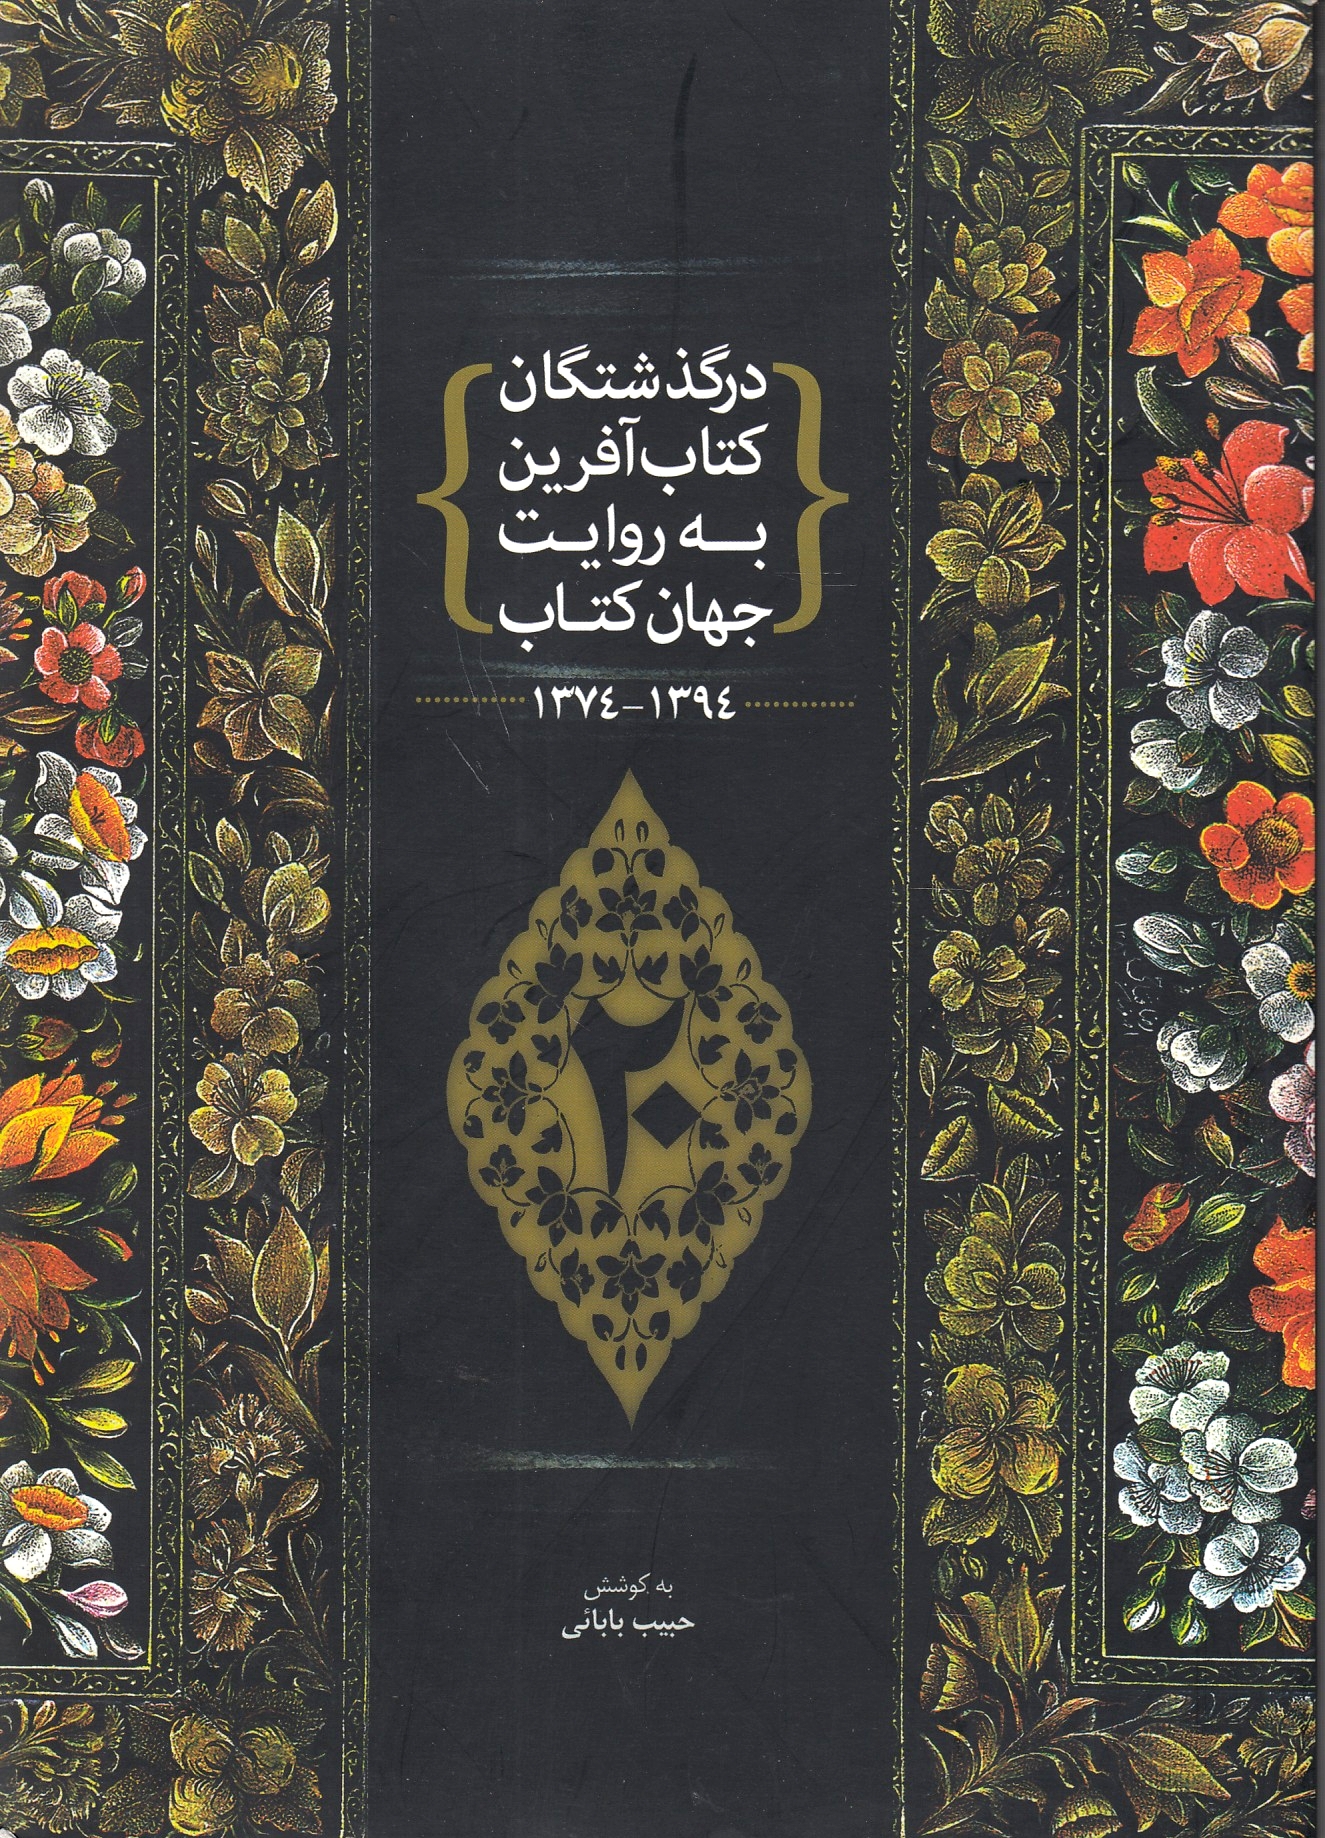 درگذشتگان
کتاب‌آفرین
به روایت
جهان کتاب
۱۳۷٤-۱۳۹٤
۲۰
به کوشش
حبیب بابائی